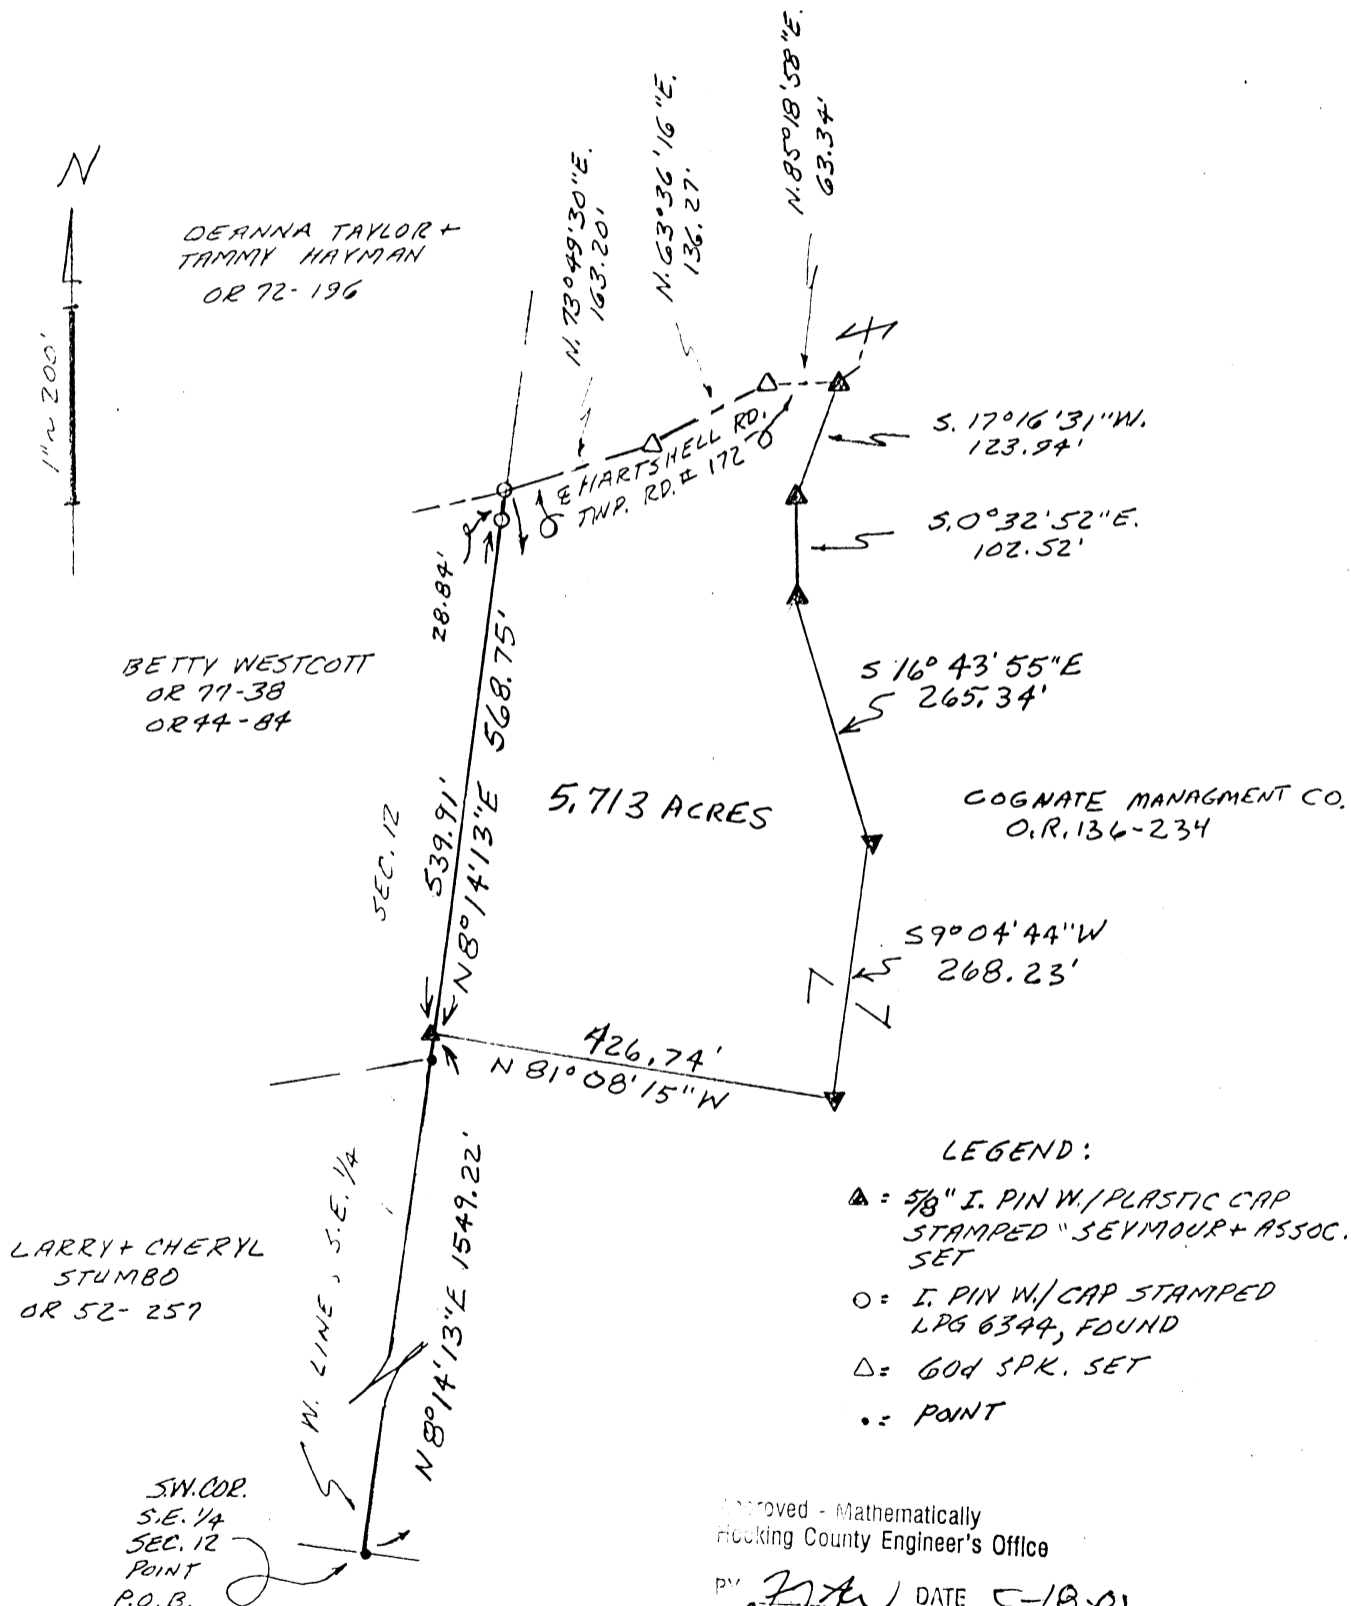 N
1" ~ 200'
DEANNA TAYLOR +
TAMMY HAYMAN
OR 72-196
N. 73°49'30"E.
163.20'
N. 63°36'16"E.
136.27'
N. 85°18'58"E.
63.34'
℄ HARTSHELL RD.
TWP. RD. # 172
S. 17°16'31"W.
123.94'
S. 0°32'52"E.
102.52'
28.84'
BETTY WESTCOTT
OR 77-38
OR 44-84
S 16° 43' 55"E
265.34'
SEC. 12
539.91'
N 8°14'13"E 568.75'
5.713 ACRES
COGNATE MANAGMENT CO.
O.R. 136-234
S 9°04'44"W
268.23'
426.74'
N 81°08'15"W
W. LINE, S.E. 1/4
N 8°14'13"E 1549.22'
LARRY + CHERYL
STUMBO
OR 52-257
LEGEND:
▲ = 5/8" I. PIN W./PLASTIC CAP
STAMPED "SEYMOUR + ASSOC.
SET
○ = I. PIN W./CAP STAMPED
LPG 6344, FOUND
△ = 60d SPK. SET
• = POINT
S.W. COR.
S.E. 1/4
SEC. 12
POINT
P.O.B.
Approved - Mathematically
Hocking County Engineer's Office
BY DATE